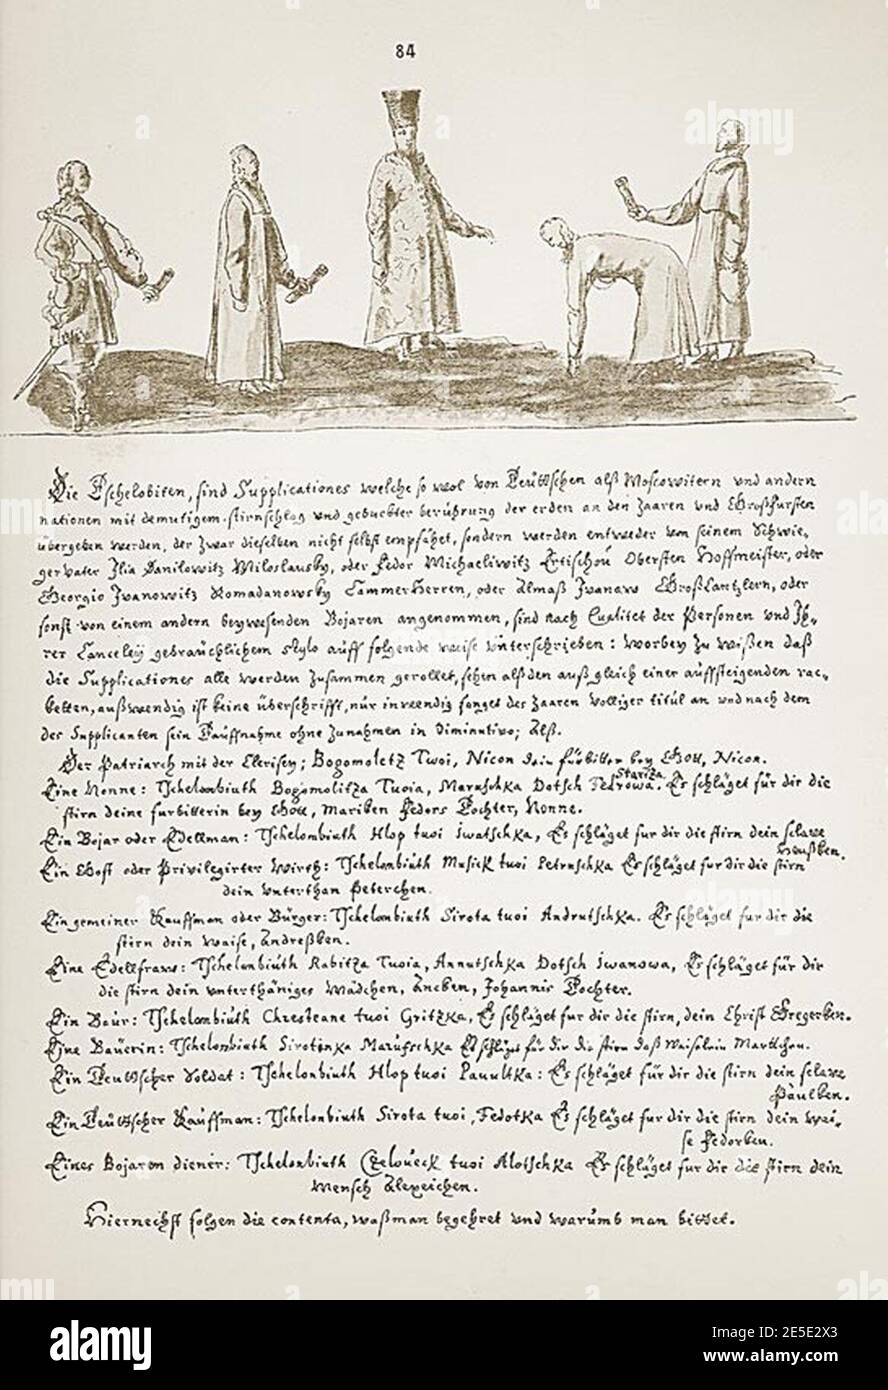 84
Die Tschelobiten, sind Supplicationes welche so wol von Teüttschen alß Moscowitern und andern
nationen mit demutigem stirnschlag und gebuckter berührung der erden an den Zaaren und Großfürsten
übergeben werden, der zwar dieselben nicht selbst empfähet, sondern werden entweder von seinem Schwie-
gervater Ilia Danilowitz Miloslausky, oder Fedor Michaeliwitz Ertischoú Obersten Hoffmeister, oder
Georgio Iwanowitz Romadanowsky CammerHerren, oder Almaß Iwanaw GroßCantzlern, oder
sonst von einem andern beywesenden Bojaren angenommen, sind nach Qualitet der Personen und Ih-
rer Canceleÿ gebraüchlichem stylo auff folgende weise unterschrieben: worbey zu wißen daß
die Supplicationes alle werden zusammen gerollet, sehen alß den auß gleich einer auffsteigenden rac-
ketten, außwendig ist keine überschrifft, nur inwendig fanget des Zaaren völliger titul an und nach dem
des Supplicanten sein Tauffnahme ohne Zunahmen in Diminutivo; Alß.
Der Patriarch mit der Clerisey; Bogomoletz Twoi, Nicon dein fürbitter bey Gott, Nicon.
Eine Nonne: Tschelombiuth Bogomolitza Tuoia, Maruschka Dotsch Fedrowa. Stariza Es schläget für dir die
stirn deine furbitterin bey Gott, Mariken Fedors Tochter, Nonne.
Ein Bojar oder Edellman: Tschelombiuth Hlop tuoi Iwatschka, Es schläget fur dir die stirn dein sclawe
Ein Gost oder Privilegirter Wirth: Tschelonbiuth Musick tuoi Petruschka Es schläget fur dir die stirn
dein unterthan Peterchen.
Ein gemeiner Kauffman oder Bürger: Tschelonbiuth Sirota tuoi Andrutschka. Es schläget fur dir die
stirn dein waise, Andreßken.
Eine Edellfraw: Tschelonbiúth Rabitza Tuoia, Annutschka Dotsch Iwanowa, Es schläget für dir
die stirn dein unterthäniges Mädchen, Aneken, Johannis Tochter.
Ein Baúr: Tschelonbiúth Chresteane tuoi Gritzka, Es schläget fur dir die stirn, dein Christ Gregerken.
Eine Baüerin: Tschelonbiuth Sirotenka Marufschka Es schläget für dir die stirn daß Waiselein
Ein Teuttscher Soldat: Tschelonbiuth Hlop tuoi Pauulka: Es schläget für dir die stirn dein sclawe
Paulken.
Ein Teüttscher Kauffman: Tschelonbiuth Sirota tuoi, Fedotka Es schläget fur dir die stirn dein wai-
se Fedorken.
Eines Bojaren diener: Tschelonbiuth Czeloueck tuoi Aloschka Es schläget fur dir die stirn dein
Mensch Alexeichen.
Hiernechst folgen die contenta, waß man begehret und warúmb man bittet.
alamy
alamy
Image ID: 2E5E2X3
www.alamy.com